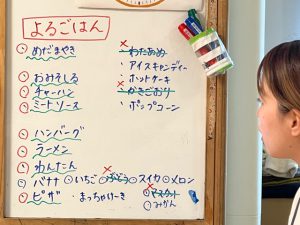 よるごはん
めだまやき
おみそしる
チャーハン
ミートソース
ハンバーグ
ラーメン
わんたん
バナナ いちご ぶどう スイカ メロン
ピザ まっちゃけーき マスカット
みかん
わたあめ
アイスキャンディー
ホットケーキ
かきごおり
ポップコーン